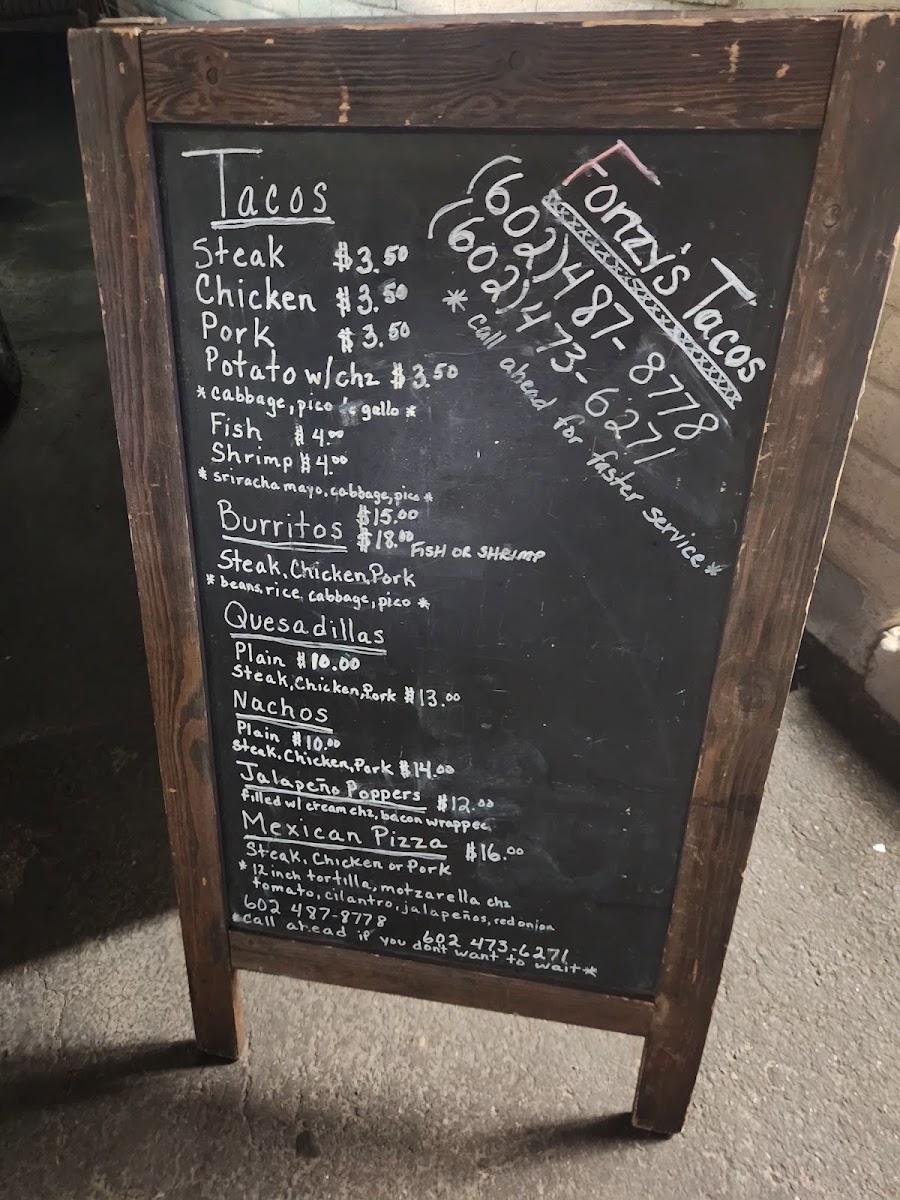 Tacos
Steak $3.50
Chicken $3.50
Pork $3.50
Potato w/chz $3.50
*cabbage, pico gallo*
Fish $4.00
Shrimp $4.00
*sriracha mayo, cabbage, pico*
Burritos $15.00
$18.00 FISH OR SHRIMP
Steak, Chicken, Pork
*beans, rice, cabbage, pico*
Quesadillas
Plain $10.00
Steak, Chicken, Pork $13.00
Nachos
Plain $10.00
Steak, Chicken, Pork $14.00
Jalapeño Poppers $12.00
filled w/ cream chz, bacon wrapped
Mexican Pizza $16.00
Steak, Chicken or Pork
*12 inch tortilla, motzarella chz
tomato, cilantro, jalapeños, red onion
602 487-8778
602 473-6271
*call ahead if you dont want to wait*
Fonzy's Tacos
(602) 487-8778
(602) 473-6271
*call ahead for faster service*